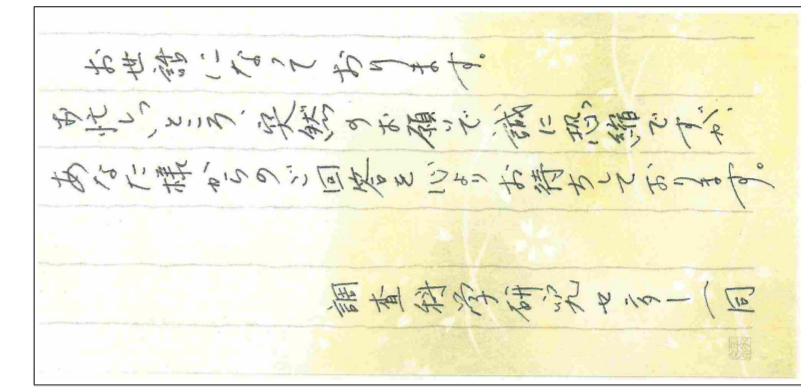 お世話になっております。
お忙しいところ、突然のお願いで誠に恐縮ですが、
あなた様からのご回答を心よりお待ちしております。
調査科学研究センター一同